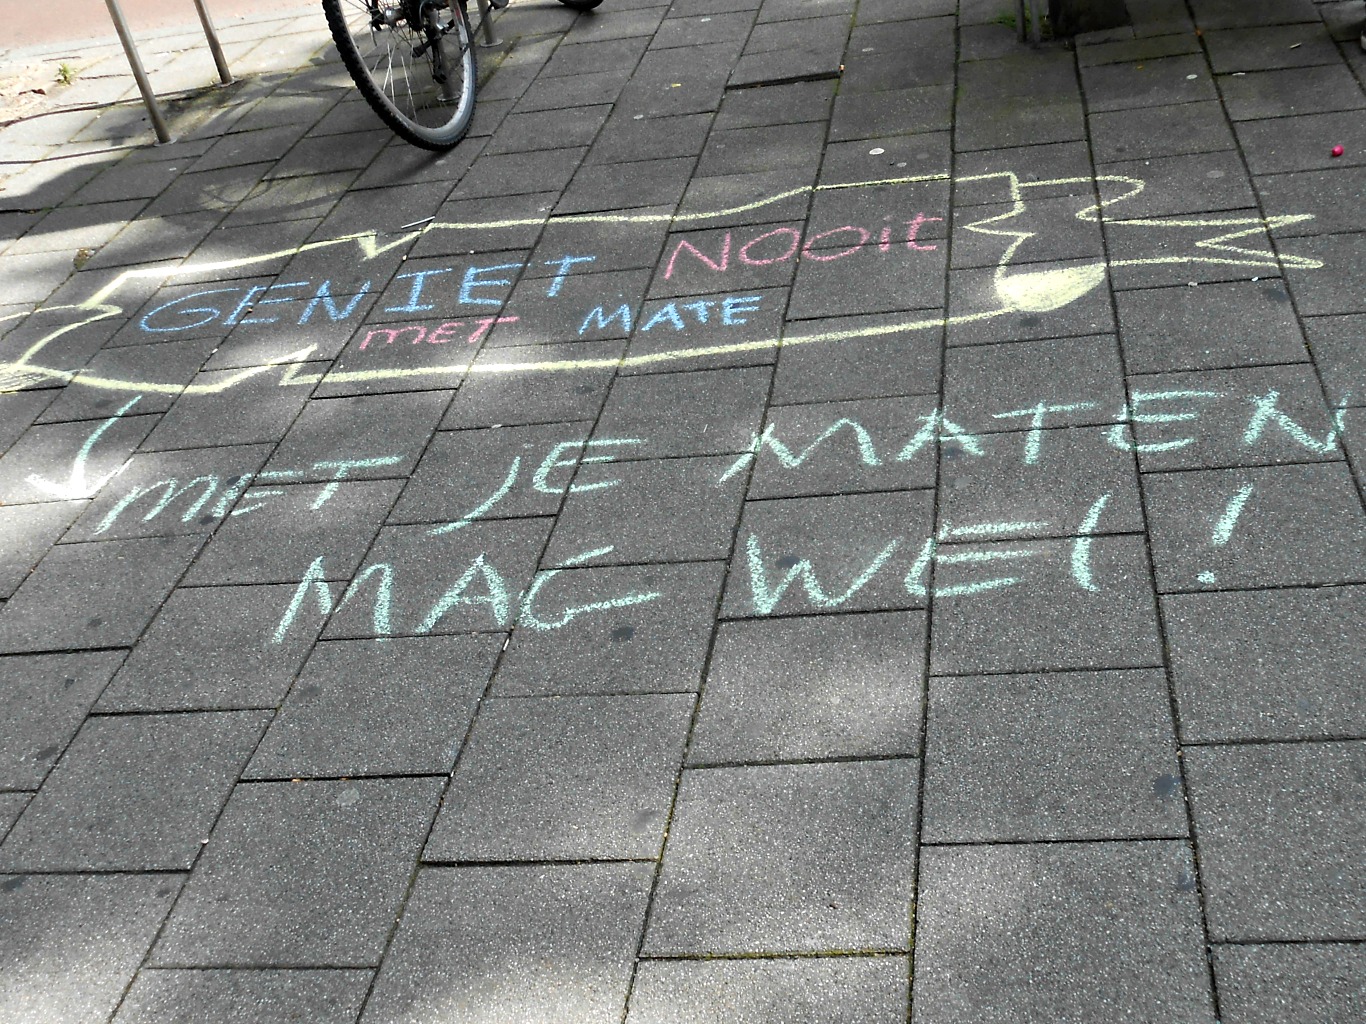 GENIET NOOit
MET MATE
MET JE MATEN
MAG WEL!